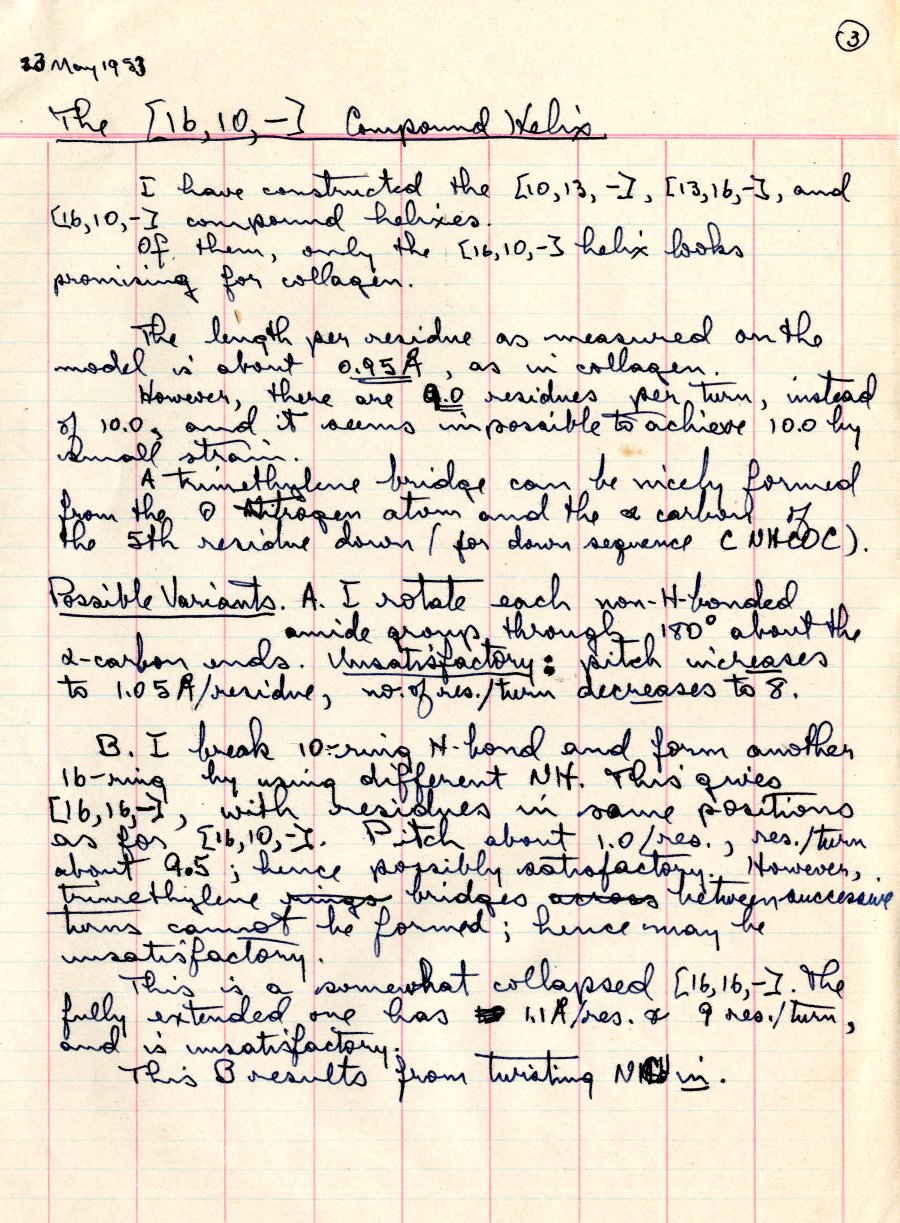 3
23 May 1953
The [16,10,-] Compound Helix
I have constructed the [10,13,-], [13,16,-], and
[16,10,-] compound helixes.
Of them, only the [16,10,-] helix looks
promising for collagen.
The length per residue as measured on the
model is about 0.95 Å, as in collagen.
However, there are 9.0 residues per turn, instead
of 10.0, and it seems impossible to achieve 10.0 by
small strain.
A trimethylene bridge can be nicely formed
from the 0 Nitrogen atom and the α carbon of
the 5th residue down (for down sequence C NHCOC).
Possible Variants. A. I rotate each non-H-bonded
amide group through 180° about the
α-carbon ends. Unsatisfactory: pitch increases
to 1.05 Å/residue, no. of res./turn decreases to 8.
B. I break 10-ring H-bond and form another
16-ring by using different NH. This gives
[16,16,-], with residues in same positions
as for [16,10,-]. Pitch about 1.0/res., res./turn
about 9.5; hence possibly satisfactory. However,
trimethylene rings bridges across between successive
turns cannot be formed; hence may be
unsatisfactory.
This is a somewhat collapsed [16,16,-]. The
fully extended one has 1.1 Å/res. & 9 res./turn,
and is unsatisfactory.
This B results from twisting in.